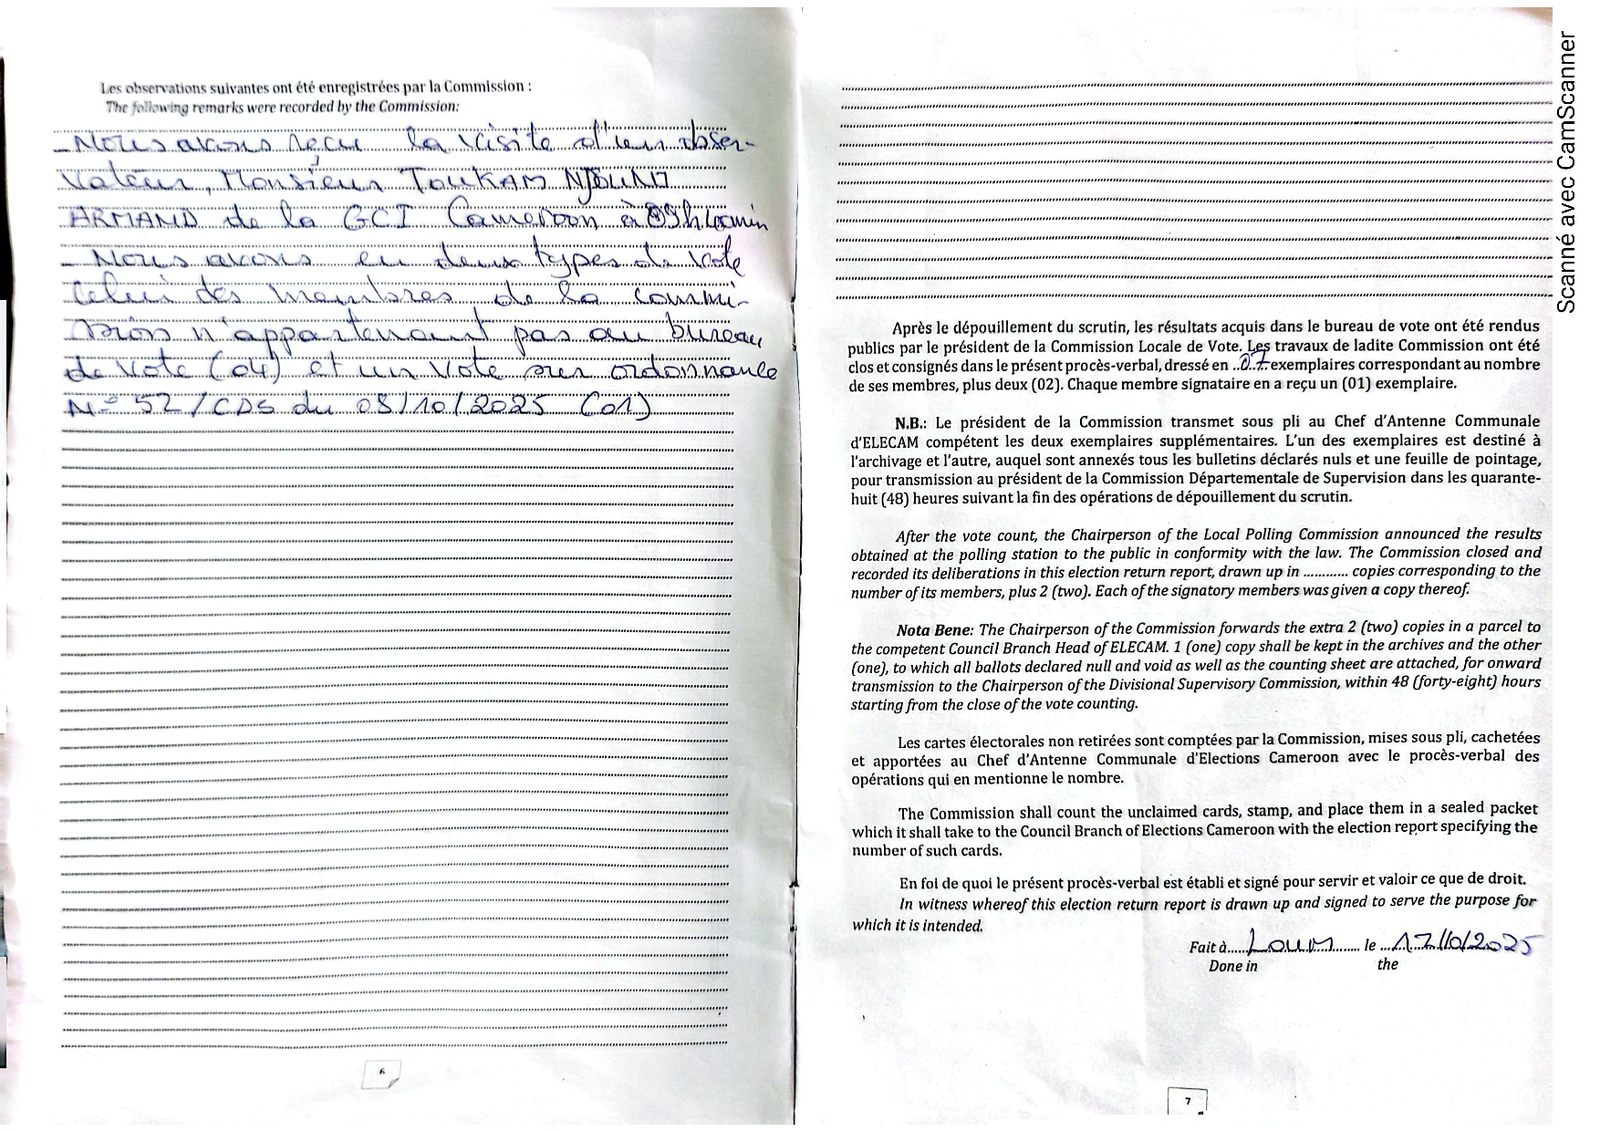 Les observations suivantes ont été enregistrées par la Commission :
The following remarks were recorded by the Commission:
- Nous avons reçu la visite d'un obser-
vateur, Monsieur TOUKAM NJOUNO
ARMAND de la GCI Cameroon à 09h40min
- Nous avons eu deux types de vote
celui des membres de la commi-
ssion n'appartenant pas au bureau
de vote (04) et un vote sur ordonnance
N° 52/CDS du 08/10/2025 (01)
6
Après le dépouillement du scrutin, les résultats acquis dans le bureau de vote ont été rendus
publics par le président de la Commission Locale de Vote. Les travaux de ladite Commission ont été
clos et consignés dans le présent procès-verbal, dressé en ..07..exemplaires correspondant au nombre
de ses membres, plus deux (02). Chaque membre signataire en a reçu un (01) exemplaire.
N.B.: Le président de la Commission transmet sous pli au Chef d'Antenne Communale
d'ELECAM compétent les deux exemplaires supplémentaires. L'un des exemplaires est destiné à
l'archivage et l'autre, auquel sont annexés tous les bulletins déclarés nuls et une feuille de pointage,
pour transmission au président de la Commission Départementale de Supervision dans les quarante-
huit (48) heures suivant la fin des opérations de dépouillement du scrutin.
After the vote count, the Chairperson of the Local Polling Commission announced the results
obtained at the polling station to the public in conformity with the law. The Commission closed and
recorded its deliberations in this election return report, drawn up in ............ copies corresponding to the
number of its members, plus 2 (two). Each of the signatory members was given a copy thereof.
Nota Bene: The Chairperson of the Commission forwards the extra 2 (two) copies in a parcel to
the competent Council Branch Head of ELECAM. 1 (one) copy shall be kept in the archives and the other
(one), to which all ballots declared null and void as well as the counting sheet are attached, for onward
transmission to the Chairperson of the Divisional Supervisory Commission, within 48 (forty-eight) hours
starting from the close of the vote counting.
Les cartes électorales non retirées sont comptées par la Commission, mises sous pli, cachetées
et apportées au Chef d'Antenne Communale d'Elections Cameroon avec le procès-verbal des
opérations qui en mentionne le nombre.
The Commission shall count the unclaimed cards, stamp, and place them in a sealed packet
which it shall take to the Council Branch of Elections Cameroon with the election report specifying the
number of such cards.
En foi de quoi le présent procès-verbal est établi et signé pour servir et valoir ce que de droit.
In witness whereof this election return report is drawn up and signed to serve the purpose for
which it is intended.
Fait à.....LOUM........ le ...12/10/2025
Done in the
7
Scanné avec CamScanner